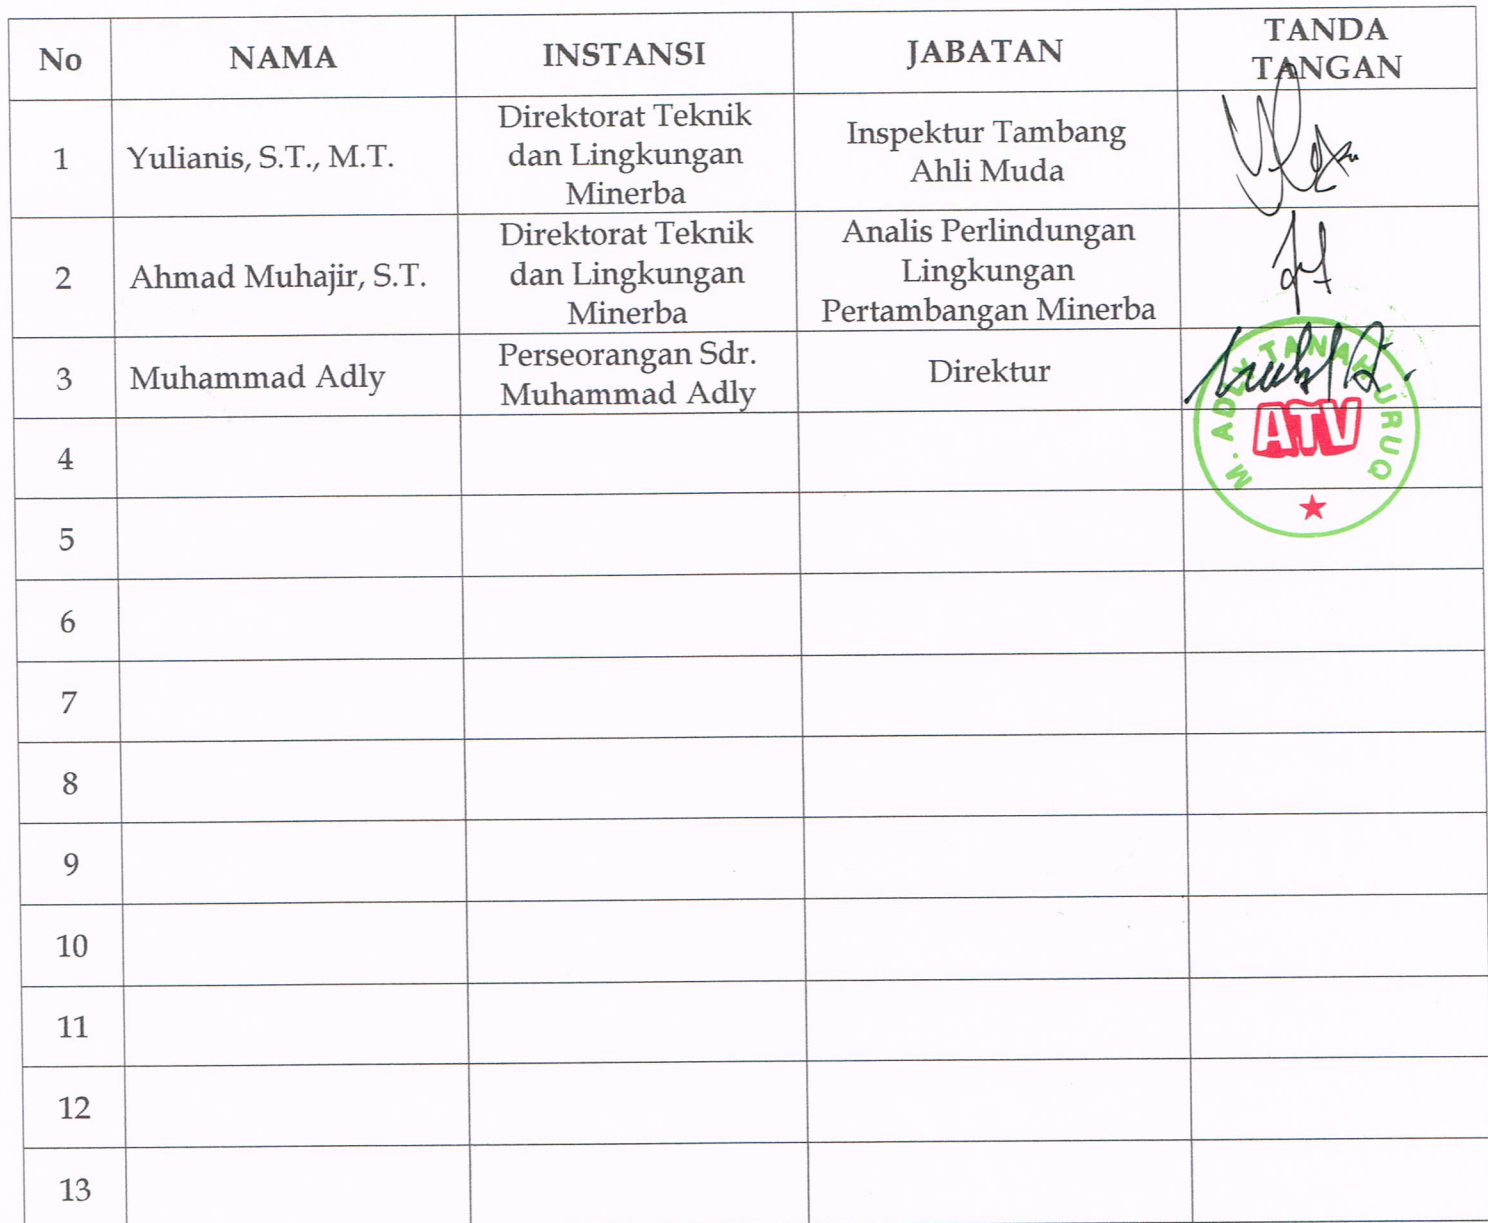 No NAMA INSTANSI JABATAN TANDA
TANGAN
1 Yulianis, S.T., M.T. Direktorat Teknik
dan Lingkungan
Minerba Inspektur Tambang
Ahli Muda
2 Ahmad Muhajir, S.T. Direktorat Teknik
dan Lingkungan
Minerba Analis Perlindungan
Lingkungan
Pertambangan Minerba
3 Muhammad Adly Perseorangan Sdr.
Muhammad Adly Direktur
M. ADLY TANAH URUQ
ATV
4
5
6
7
8
9
10
11
12
13